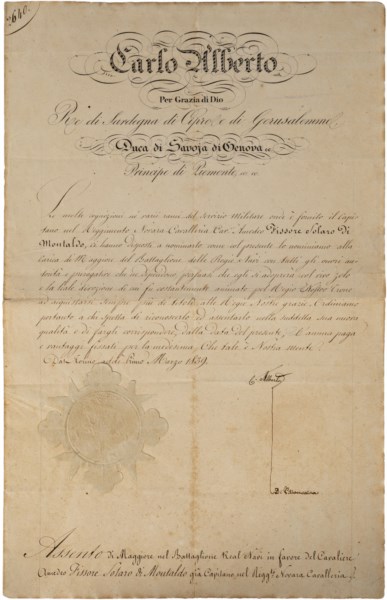 2640.
Carlo Alberto
Per Grazia di Dio
Re di Sardegna di Cipro, e di Gerusalemme
Duca di Savoja di Genova ec
Principe di Piemonte, ec ec
Le molte cognizioni in varii rami del Servizio Militare onde è fornito il Capi
tano nel Reggimento Novara Cavalleria Cav. Tissore Solaro Di
Montaldo, ci hanno disposti a nominarlo, come col presente lo nominiamo alla
Carica di Maggiore del Battaglione delle Regie Navi con tutti gli onori au
torità e privilegi che ne dipendono, persuasi che egli si adoprerà col suo zelo
e la lode
ad acquistarsi sempre più di titoli alle Regie Nostre grazie. Ordiniamo
pertanto a chi spetta di riconoscerlo ed assentarlo nella suddetta sua nuova
qualità e di fargli corrispondere, dalla data del presente, l'annua paga
e vantaggi fissati per la medesima, Che tale è Nostra mente.
Dat. Torino, addì Primo Marzo 1839.
C. Alberto
Assento di Maggiore nel Battaglione Real Navi in favore del Cavaliere
Tissore Solaro di Montaldo già Capitano nel Regg.to Novara Cavalleria